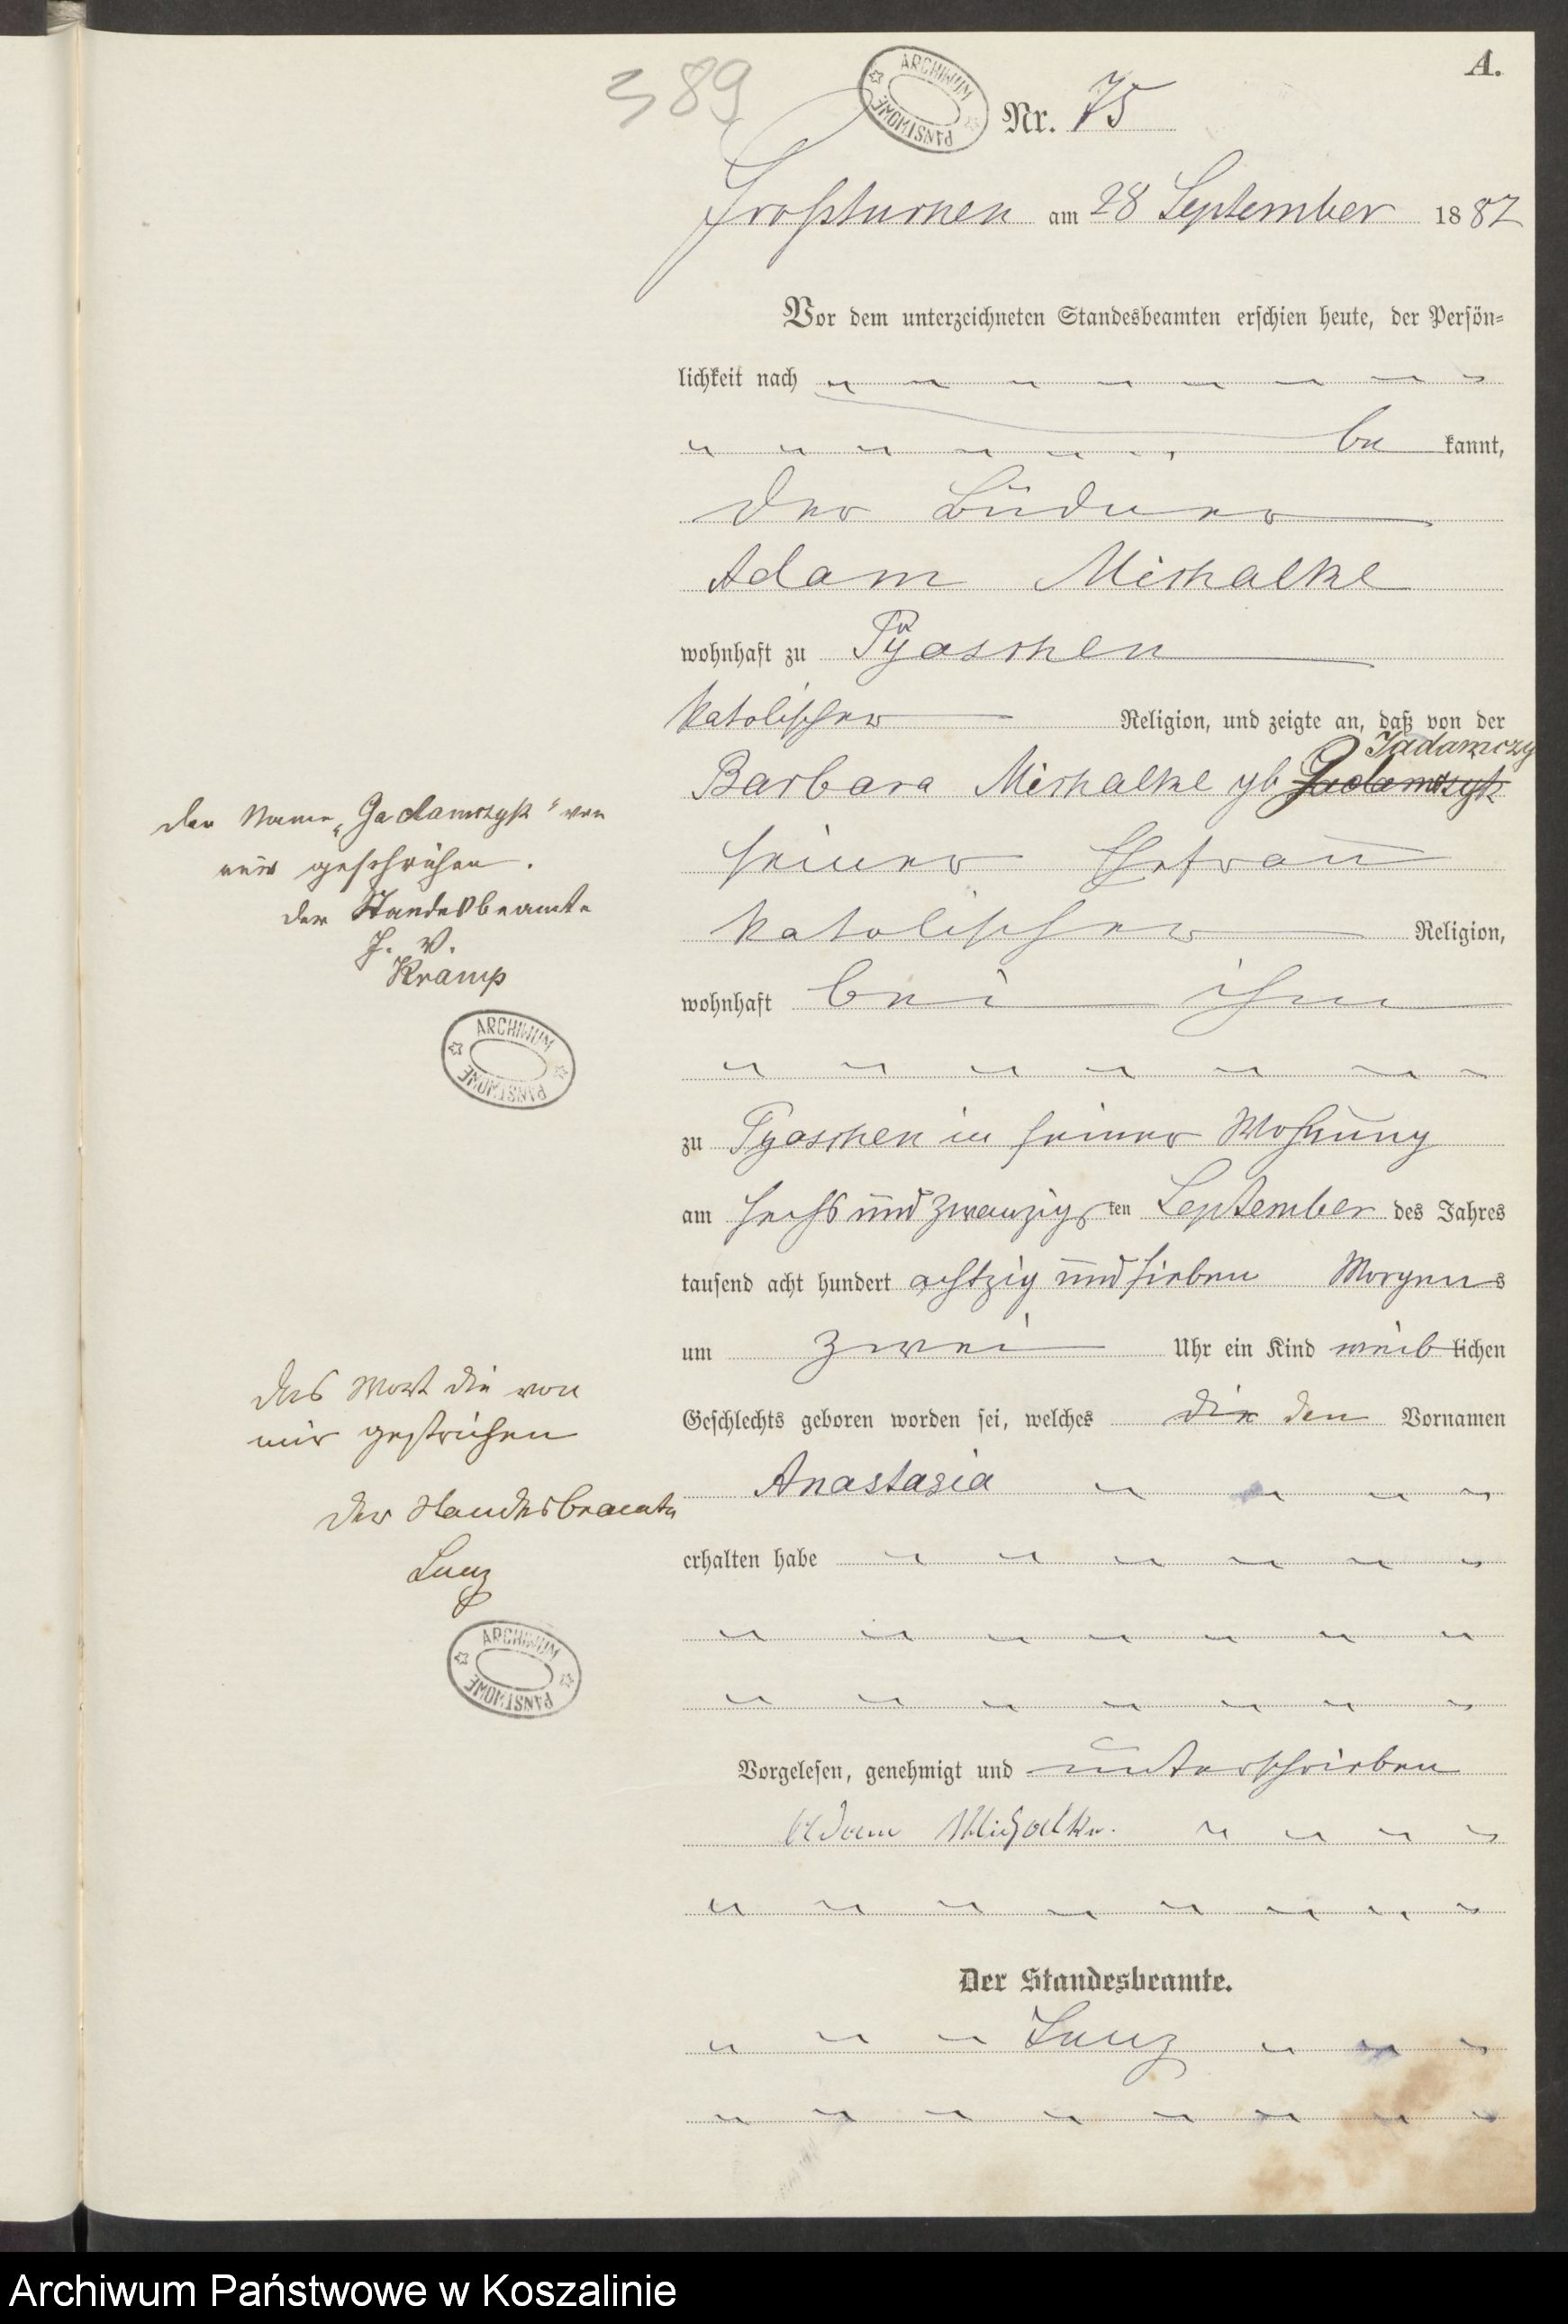 A.
389
ARCHIWUM PAŃSTWOWE
Nr. 75
Großtuchen am 28 September 1887
Vor dem unterzeichneten Standesbeamten erschien heute, der Persön-
lichkeit nach
be kannt,
der Büdner
Adam Michalke
wohnhaft zu Pyaschen
katolischer Religion, und zeigte an, daß von der
Jadamczyk
Barbara Michalke gb Gadamczyk
seiner Ehefrau
katolischer Religion,
wohnhaft bei ihm
zu Pyaschen in seiner Wohnung
am sechs und zwanzigsten September des Jahres
tausend acht hundert achtzig und sieben Morgens
um zwei Uhr ein Kind weiblichen
Geschlechts geboren worden sei, welches die den Vornamen
Anastasia
erhalten habe
Vorgelesen, genehmigt und unterschrieben
Adam Michalke.
Der Standesbeamte.
Lenz
Der Name „Gadamczyk" von
mir gestrichen.
Der Standesbeamte
J. V.
Kramp
ARCHIWUM PAŃSTWOWE
Das Wort die von
mir gestrichen
Der Standesbeamte
Lenz
ARCHIWUM PAŃSTWOWE
Archiwum Państwowe w Koszalinie